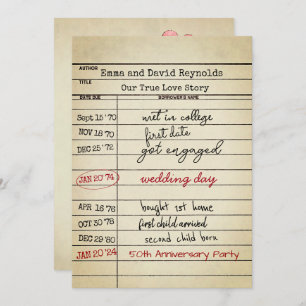 AUTHOR Emma and David Reynolds
TITLE Our True Love Story
DATE DUE BORROWER'S NAME
Sept 15 '70 met in college
NOV 18 '70 first date
DEC 25 '72 got engaged
JAN 20 '74 wedding day
APR 16 '76 bought 1st home
OCT 30 '78 first child arrived
DEC 29 '80 second child born
JAN 20 '24 50th Anniversary Party